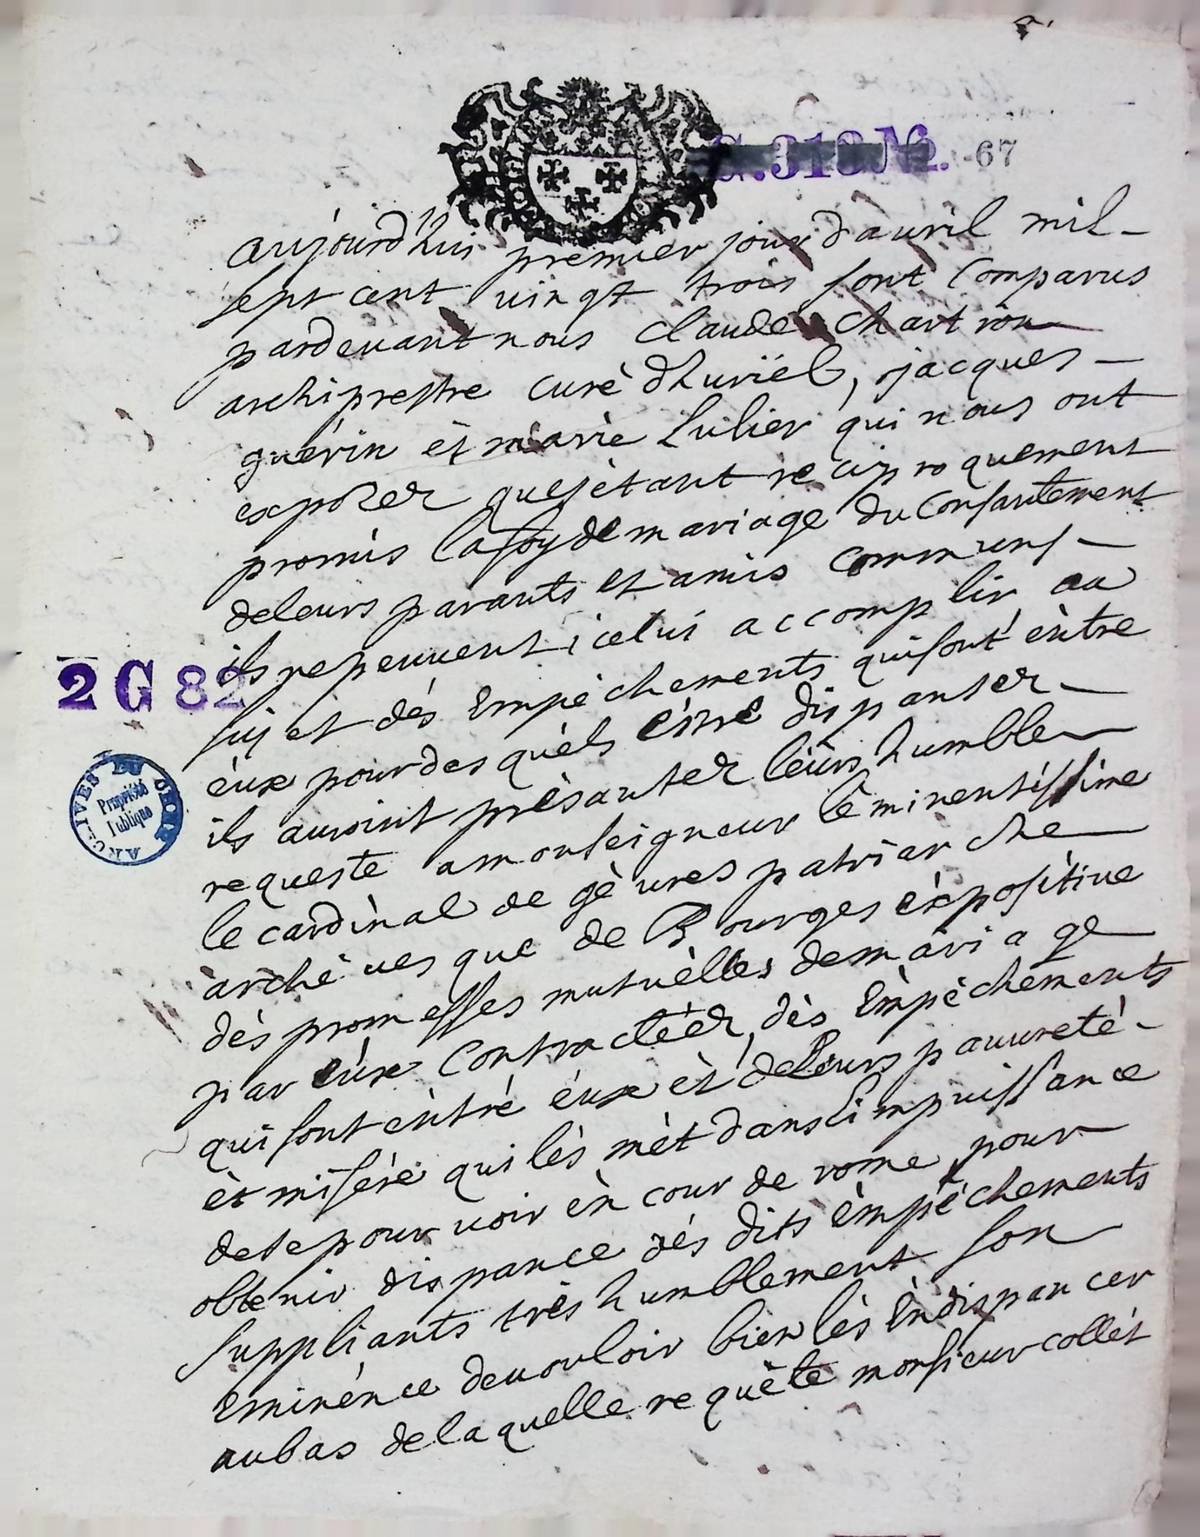 G.318 N2. -67
aujourd'hui premier jour d'avril mil-
sept cent vingt trois sont comparus
pardevant nous claude chartron
archiprestre curè d'huriël, jacques-
guérin èt marie Lulier qui nous ont
exposer quesètant reciproquement
promis lafoy de mariage du consantement
deleurs parants et amis communs-
ils ne peuvent icelui accomplir au
2 G 82
sujet dés Empéchements qui sont èntre
eux pour des quèls être dispanser-
ARCHIVES DU CHER
Propriété Publique
ils auroint prèsanter leurs humble
requeste a monseigneur l'eminentissime
le cardinal de gèvres patriarche
archèvesque de Bourges èxpositive
dés promesses mutuèlles demariage
par eux contractéer, dès Empèchements
qui sont èntré éux èt deleurs pauvreté-
èt miséré qui lès mèt dans l'impuissance
de se pourvoir èn cour de rome, pour
obtenir dispance dés dits èmpéchements
suppliants très humblement son
Eminènce de vouloir bien lès èn dispancer
au bas de laquelle requète monsieur collét